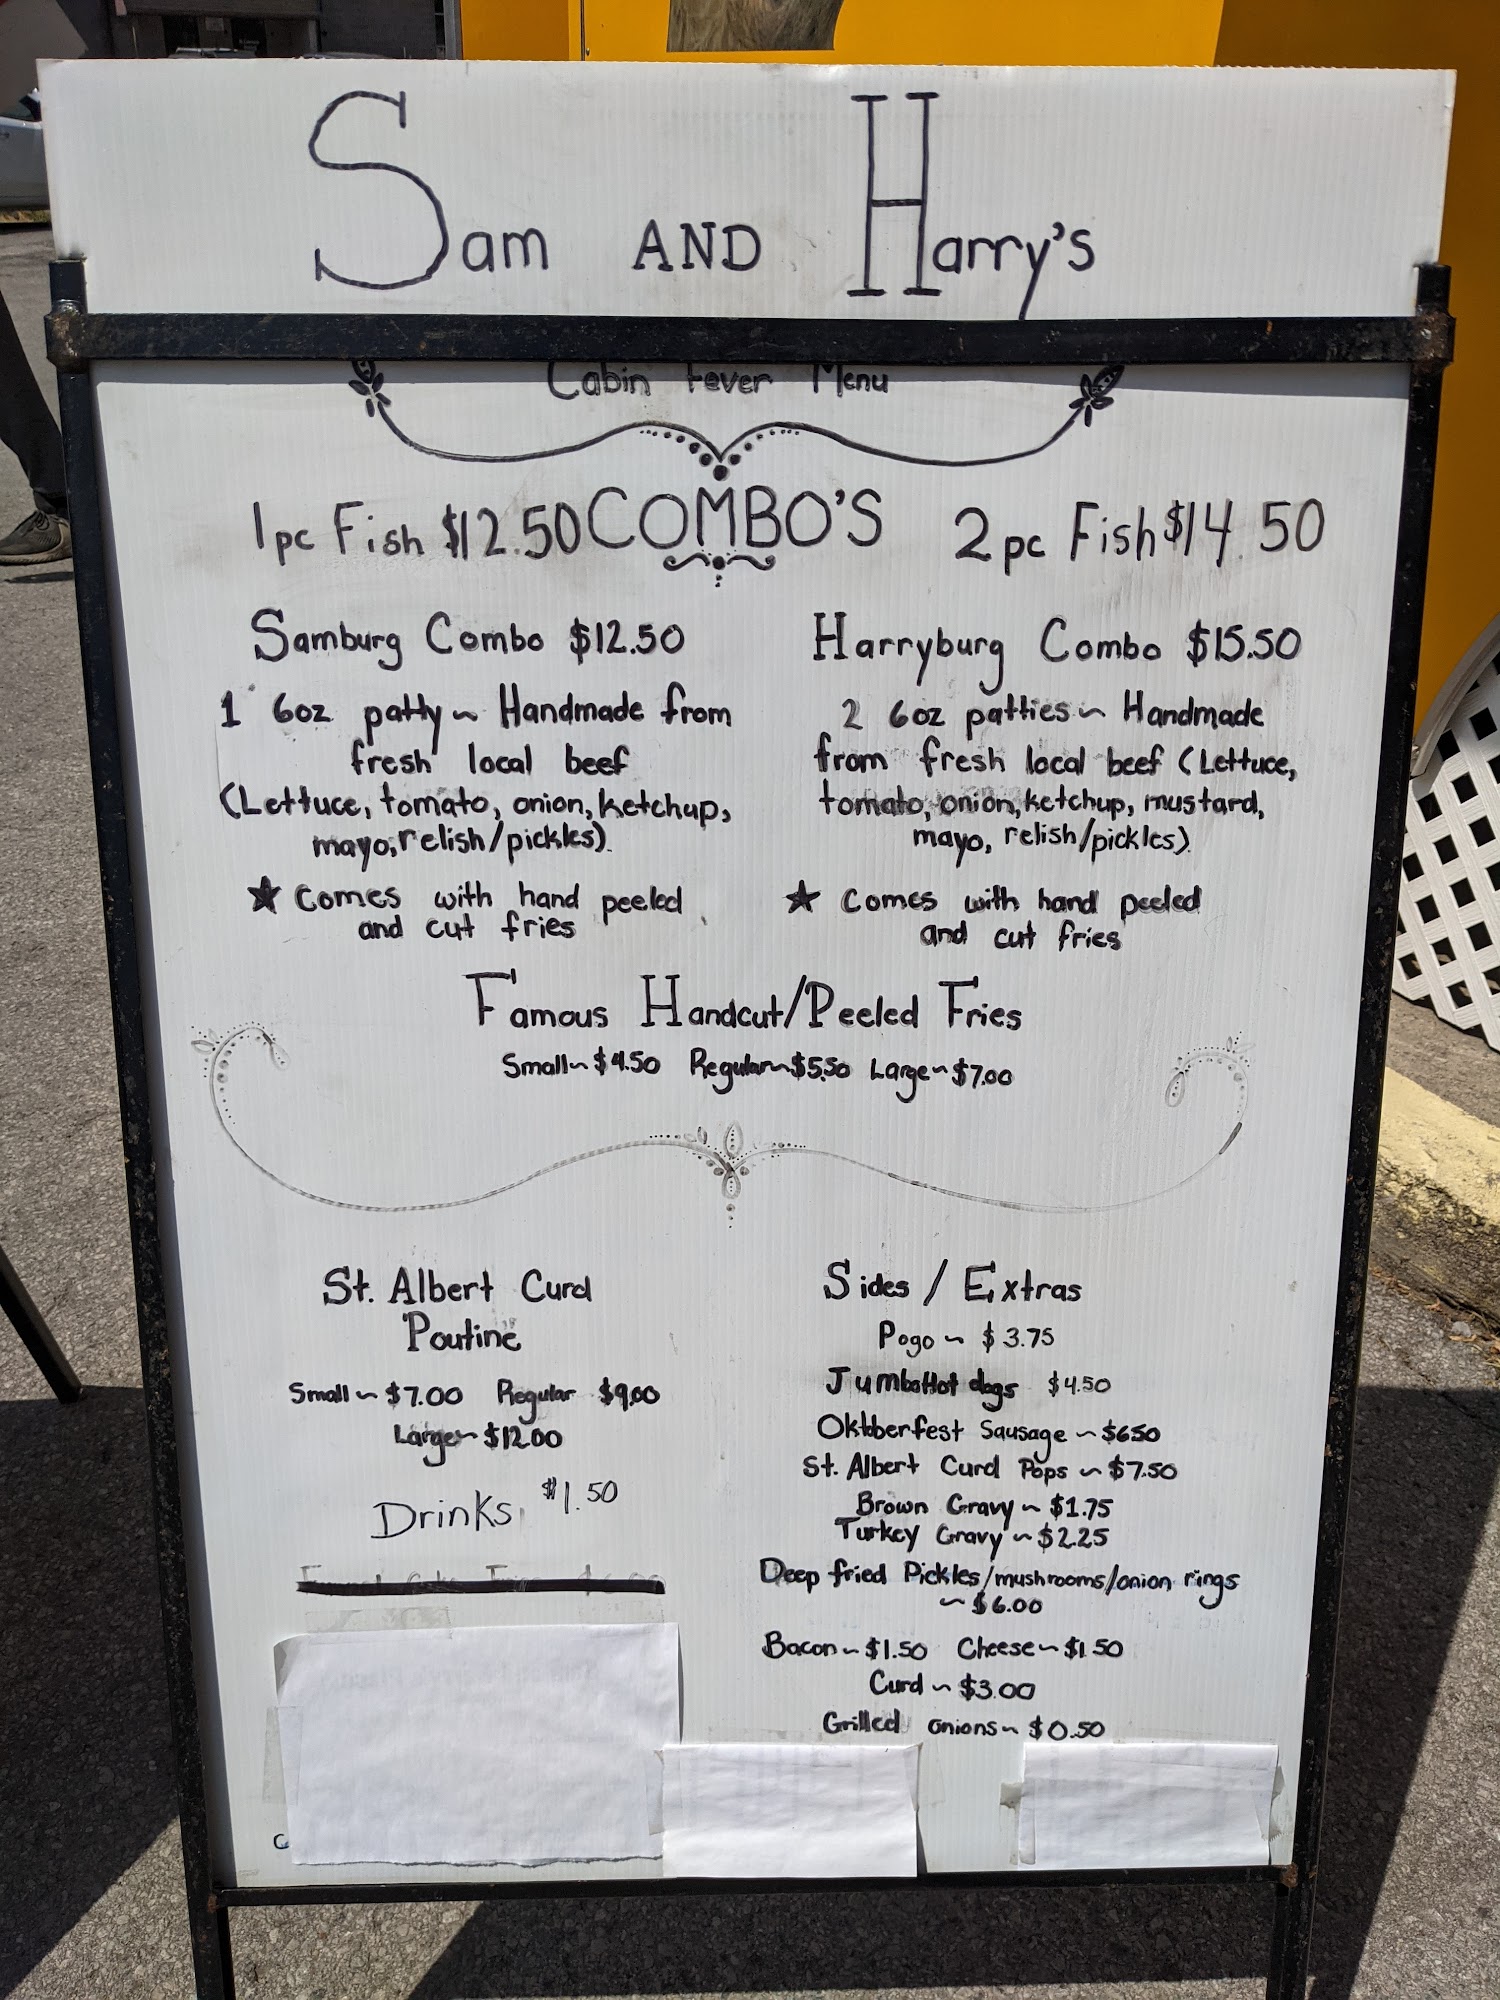 Sam AND Harry's
Cabin Fever Menu
1pc Fish $12.50 COMBO'S 2pc Fish $14.50
Samburg Combo $12.50
1 6oz patty ~ Handmade from
fresh local beef
(Lettuce, tomato, onion, ketchup,
mayo, relish/pickles)
★ Comes with hand peeled
and cut fries
Harryburg Combo $15.50
2 6oz patties ~ Handmade
from fresh local beef (Lettuce,
tomato, onion, ketchup, mustard,
mayo, relish/pickles)
★ Comes with hand peeled
and cut fries
Famous Handcut/Peeled Fries
Small ~ $4.50 Regular ~ $5.50 Large ~ $7.00
St. Albert Curd
Poutine
Small ~ $7.00 Regular $9.00
Large ~ $12.00
Drinks $1.50
Sides / Extras
Pogo ~ $3.75
Jumbo Hot dogs $4.50
Oktoberfest Sausage ~ $6.50
St. Albert Curd Pops ~ $7.50
Brown Gravy ~ $1.75
Turkey Gravy ~ $2.25
Deep fried Pickles/mushrooms/onion rings
~ $6.00
Bacon ~ $1.50 Cheese ~ $1.50
Curd ~ $3.00
Grilled onions ~ $0.50